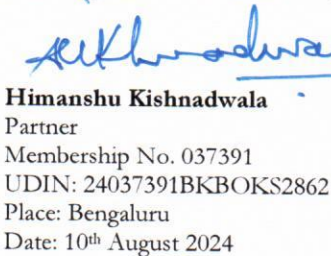 Himanshu Kishnadwala
Partner
Membership No. 037391
UDIN: 24037391BKBOKS2862
Place: Bengaluru
Date: 10th August 2024